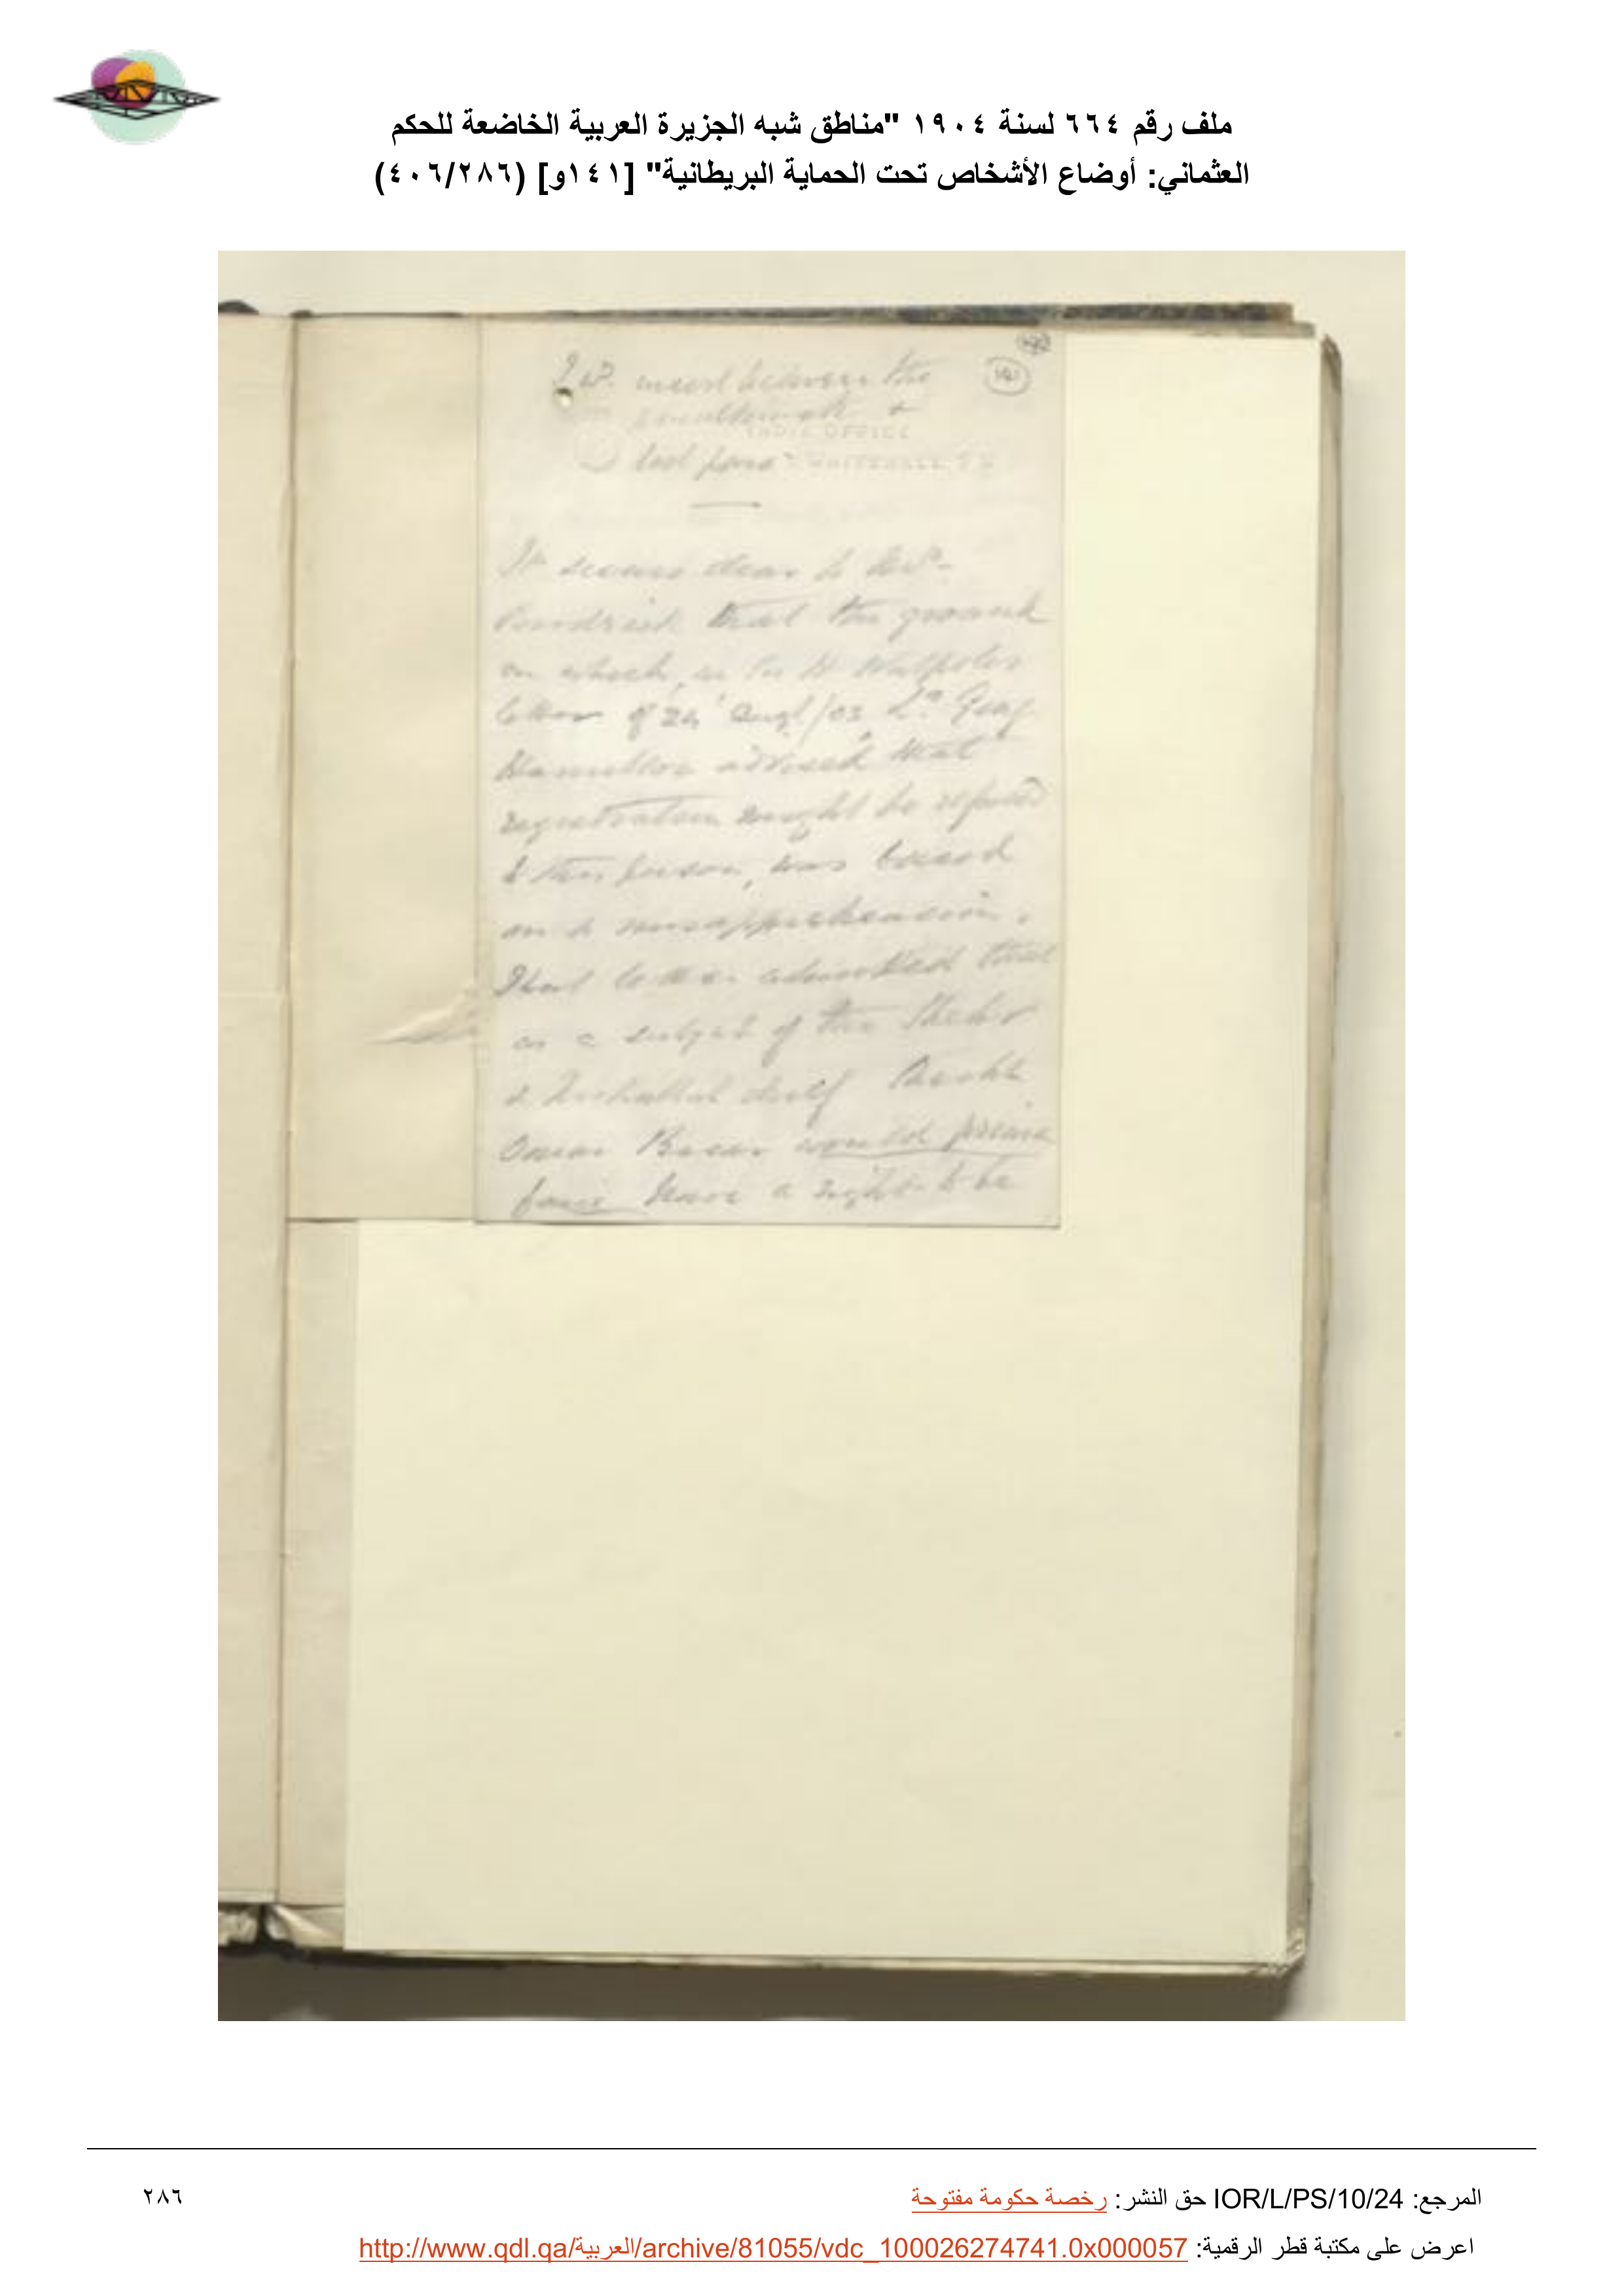 ملف رقم ٦٦٤ لسنة ١٩٠٤ "مناطق شبه الجزيرة العربية الخاضعة للحكم
العثماني: أوضاع الأشخاص تحت الحماية البريطانية" [١٤١و] (٤٠٦/٢٨٦)
141
insert between the
penultimate &
INDIA OFFICE
last para
WHITEHALL S W
It seems clear to
that the ground
on which, in Sir H Walpole's
letter of 24 Augt/03, Ld. Geog
Hamilton advised that
registration might be refused
to this person, was based
on a misapprehension.
That letter admitted that
as a subject of the Shehr
& Mokallah itself Sheikh
Omar would prima
facie have a right to be
المرجع: IOR/L/PS/10/24 حق النشر: رخصة حكومة مفتوحة
٢٨٦
اعرض على مكتبة قطر الرقمية: http://www.qdl.qa/العربية/archive/81055/vdc_100026274741.0x000057